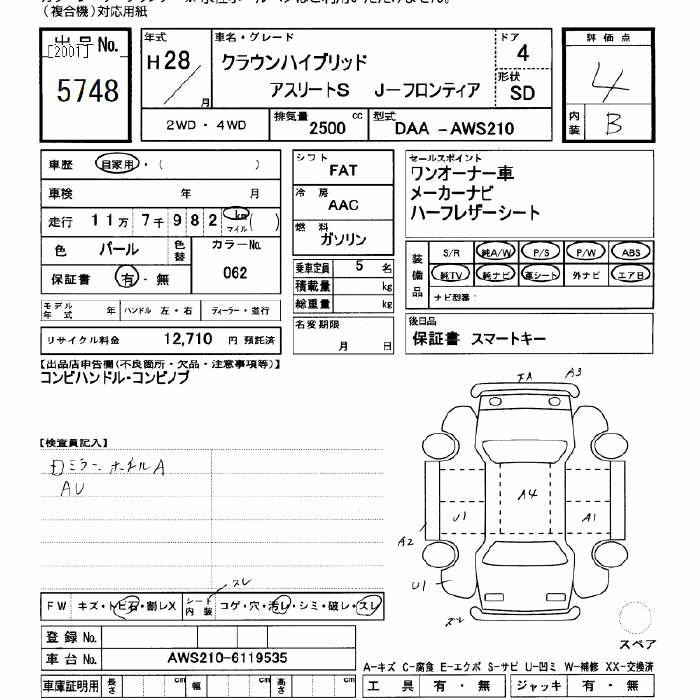 (複合機)対応用紙
出品No.
[2001]
5748
年式
H28
月
車名・グレード
クラウンハイブリッド
アスリートS J-フロンティア
ドア
4
形状
SD
評価点
4
内装
B
2WD・4WD
排気量
2500 cc
型式
DAA -AWS210
車歴 自家用・( )
車検 年 月
走行 11万 7千 982 km マイル ( )
色 パール
色替
カラーNo.
062
保証書 有・無
モデル年式 年 ハンドル 左・右 ディーラー・並行
リサイクル料金 12,710 円 預託済
シフト
FAT
冷房
AAC
燃料
ガソリン
乗車定員 5 名
積載量 kg
総重量 kg
名変期限
月 日
セールスポイント
ワンオーナー車
メーカーナビ
ハーフレザーシート
装備品
S/R 純A/W P/S P/W ABS
純TV 純ナビ 革シート 外ナビ エアB
ナビ型番:
後日品
保証書 スマートキー
【出品店申告欄(不良箇所・欠品・注意事項等)】
コンビハンドル・コンビノブ
【検査員記入】
AU
A3
A4
U1
A1
A2
U1
スレ
FW キズ・トビ石・割レX
シート内装
コゲ・穴・汚レ・シミ・破レ・スレ
スペア
登録 No.
車台 No. AWS210-6119535
A-キズ C-腐食 E-エクボ S-サビ U-凹ミ W-補修 XX-交換済
車庫証明用 長さ cm 幅 cm 高さ cm
工具 有・無 ジャッキ 有・無